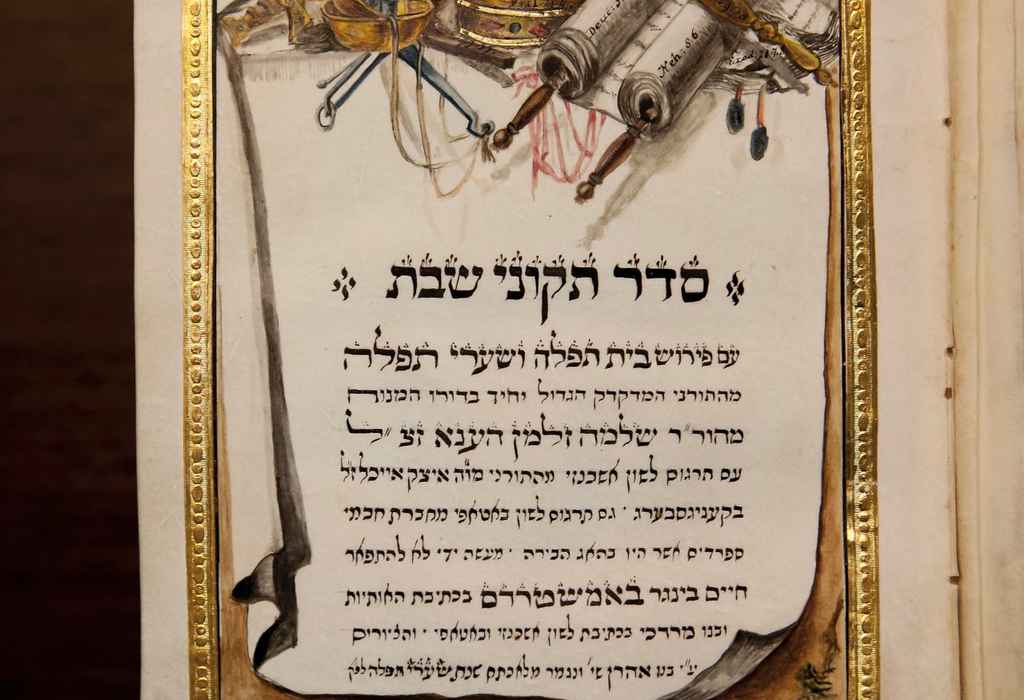 Neh: 8. 6
סדר תקוני שבת
עם פירוש בית תפלה ושערי תפלה
מהתורני המדקדק הגדול יחיד בדורו המנוח
מהור״ר שלמה זלמן הענא זצ״ל
עם תרגום לשון אשכנזי מהתורני איצק אייכל ז״ל
בקעניגסבערג · גם תרגום לשון באטאפי מחברת חכמי
ספרדים אשר היו בהאג הבירה · מעשה ידי לא להתפאר
חיים בינגר באמשטרדם בכתיבת האותיות
ובנו מרדכי בכתיבת לשון אשכנזי ובאטאפי · והציורים
ע״י בנו אהרן שי׳ ונגמר מלאכתם שנת שערי תפלה לפק